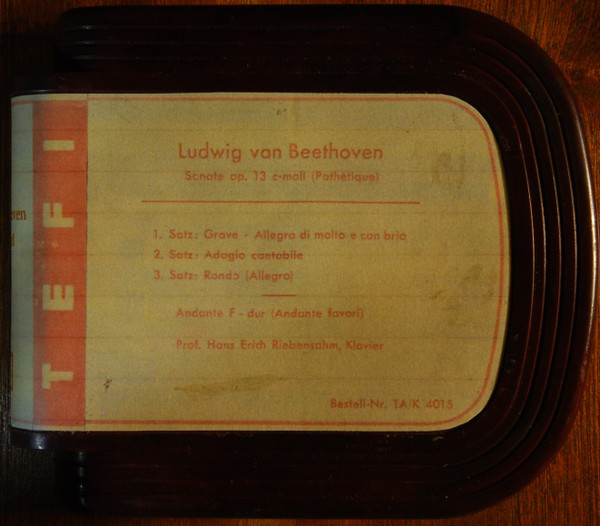 TEFI
Ludwig van Beethoven
Sonate op. 13 c-moll (Pathétique)
1. Satz: Grave - Allegro di molto e con brio
2. Satz: Adagio cantabile
3. Satz: Rondo (Allegro)
Andante F-dur (Andante favori)
Prof. Hans Erich Riebensahm, Klavier
Bestell-Nr. TA/K 4015